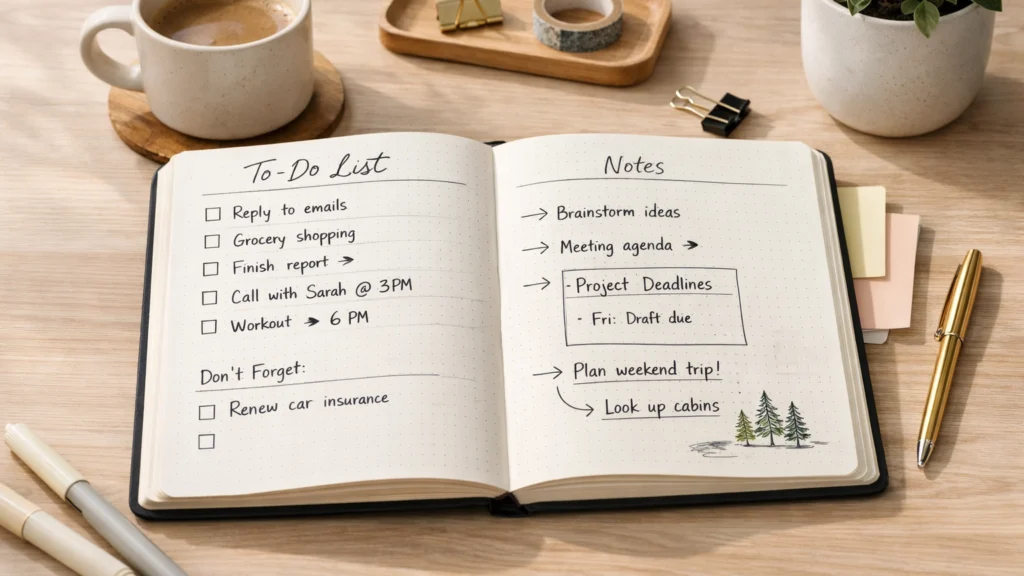 To-Do List
Reply to emails
Grocery shopping
Finish report →
Call with Sarah @ 3PM
Workout → 6 PM
Don't Forget:
Renew car insurance
Notes
→ Brainstorm ideas
→ Meeting agenda →
→ - Project Deadlines
- Fri: Draft due
→ Plan weekend trip!
→ Look up cabins